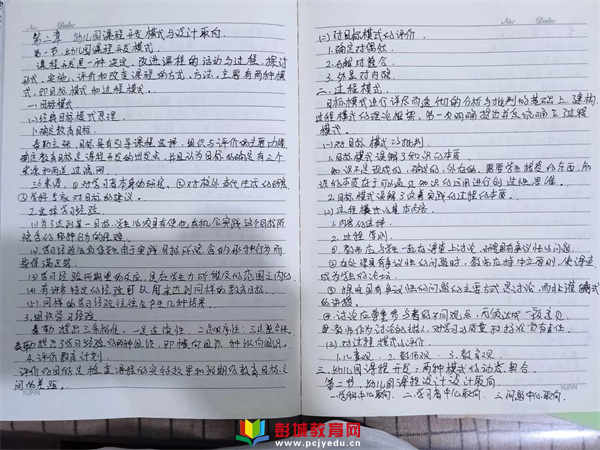 No
Date
第二章 幼儿园课程开发模式与设计取向
第一节 幼儿园课程开发模式
课程开发是一种决定、改进课程的活动与过程，探讨
形成、实施、评价和改变课程的方式、方法。主要有两种模
式，即目标模式和过程模式。
一、目标模式
(一)经典目标模式原理
1.确定教育目标
泰勒主张，目标具有引导课程选择、组织与评价的主要功能
确定教育目标是课程开发的出发点，并且认为目标的确定有三个
来源和两道过滤网
三个来源：①对学习者本身的研究、②对校外当代生活的研究
③学科专家对目标的建议。
2.选择学习经验
(1)为了达到某一目标，学生必须具有使他有机会实践这个目标所
隐含的那种行为的经验。
(2)学习经验必须使学生由于实践目标所隐含的那种行为而
获得满足感
(3)学习经验所期望的反应，是在学生力所能及的范围之内的
(4)有许多特定的经验可以用来达到同样的教育目标。
(5)同样的学习经验往往会产生几种结果。
3.组织学习经验
泰勒提出三条标准，一是连续性 二是顺序性；三是整合性
泰勒提出了学习经验的两种组织，即横向组织 和纵向组织。
4.评价教育计划
评价的目的是检查课程的实际效果和预期的教育目标之
间的差距。
YUPIN
No
Date
(二)对目标模式的评价
1.确定对偶然
2.分解对整合
3.外显对内隐
二、过程模式
目标模式进行详尽而透彻的分析与批判的基础上，建构
过程模式的理论框架，第一次明确提出并反映确立了过程
模式。
(一)对目标模式的批判
1.目标模式误解了知识的本质
知识不是现成的、确定的、外在的，需要学生接受的东西，知
识的本质在于可以通过知识的运用进行创造性思维。
2.目标模式误解了改善实践的过程的本质。
(二)过程模式的基本内容
1.内容的选择
2.过程原则
①教师应与学生一起在课堂上讨论、研究具有争议性的问题
②在处理具有争议性的问题时，教师应持中立原则，使课堂
成为学生的论坛
③探究具有争议性的问题的主要方式是讨论，而非灌输式
的讲授
④讨论应尊重参与者的不同观点，而毋须达成一致意见
⑤教师作为讨论的主持人，对学习的质量和标准负有责任。
(三)对过程模式的评价
1.儿童观 2.教师观 3.教育观
三、幼儿园课程开发：两种模式的动态契合
第二节 幼儿园课程设计设计取向
一、学科中心取向、二、学习者中心取向、三、问题中心取向
YUPIN
彭城教育网
www.pcjyedu.cn